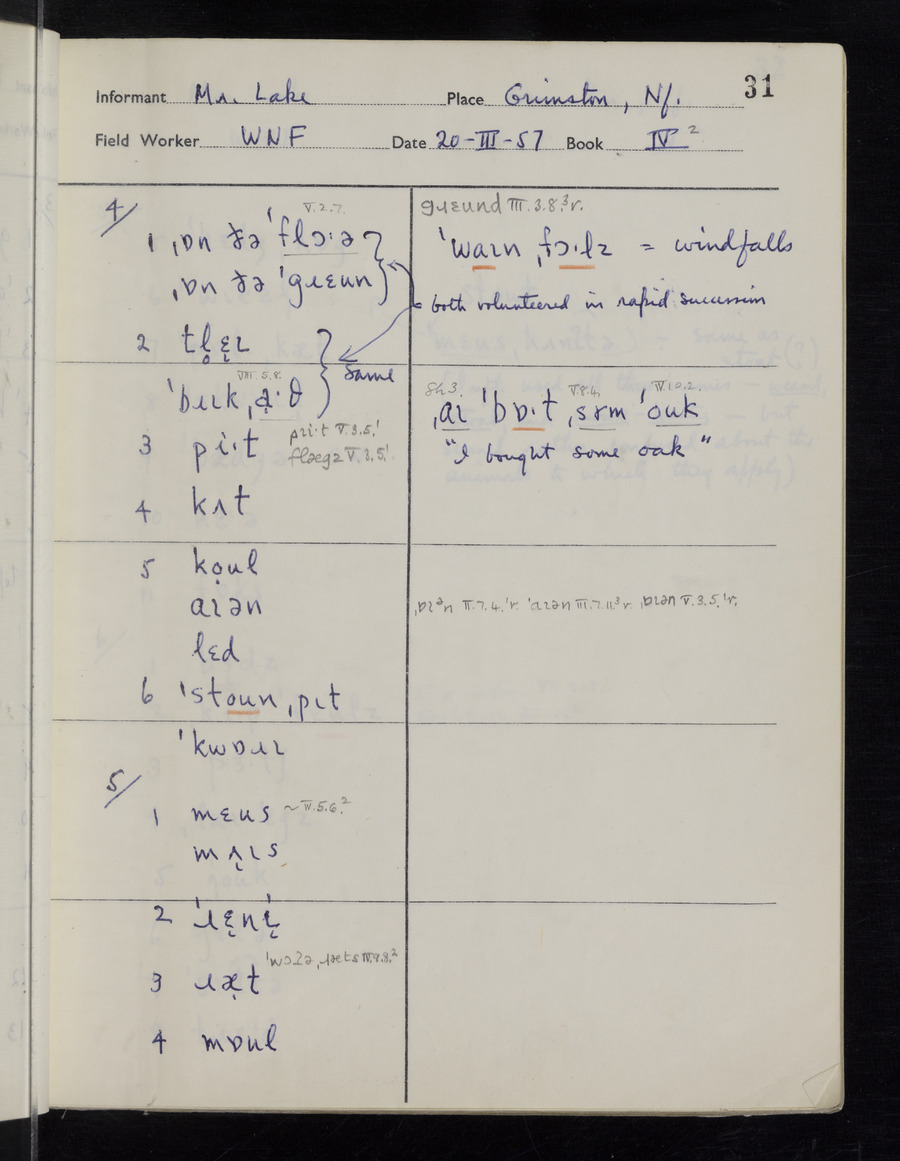 31
Informant Mr. Lake Place Grimston, Nf.
Field Worker WNF Date 20-III-57 Book IV²
4/
V.2.7.
1 ˌɒn ðə ˈflɔˑə
ˌɒn ðə ˈgɹɛun
2 tl̥ɛ̞ɪ
same
VIII.5.8.
ˈbɹɪkˌạˑθ
3 piˑt pɹiˑt V.3.5.¹
flægz V.3.5.¹
4 kʌt
5 kọul
aɪən
lɛd
6 ˈstounˌpɪt
ˈkwɒɹɪ
5/
1 mɛus ~ IV.5.6.²
mʌ̞ɪs
2 ˈɹɛ̞nɪ̞
3 ɹæ̣t ˈwɔʔəˌɹæts IV.9.8.²
4 mɒul
gɹɛund III.3.8.³r.
ˈwaɪnˌfɔˑlz = windfalls
both volunteered in rapid succession
Sh3. V.8.4. IV.10.2.
ˌaɪ ˈbɒˑt ˌsɤm ˈouk
"I bought some oak"
ˌɒɪən II.7.4.¹r. ˈaɪən III.7.11³r. ˌɒɪən V.3.5.¹r.